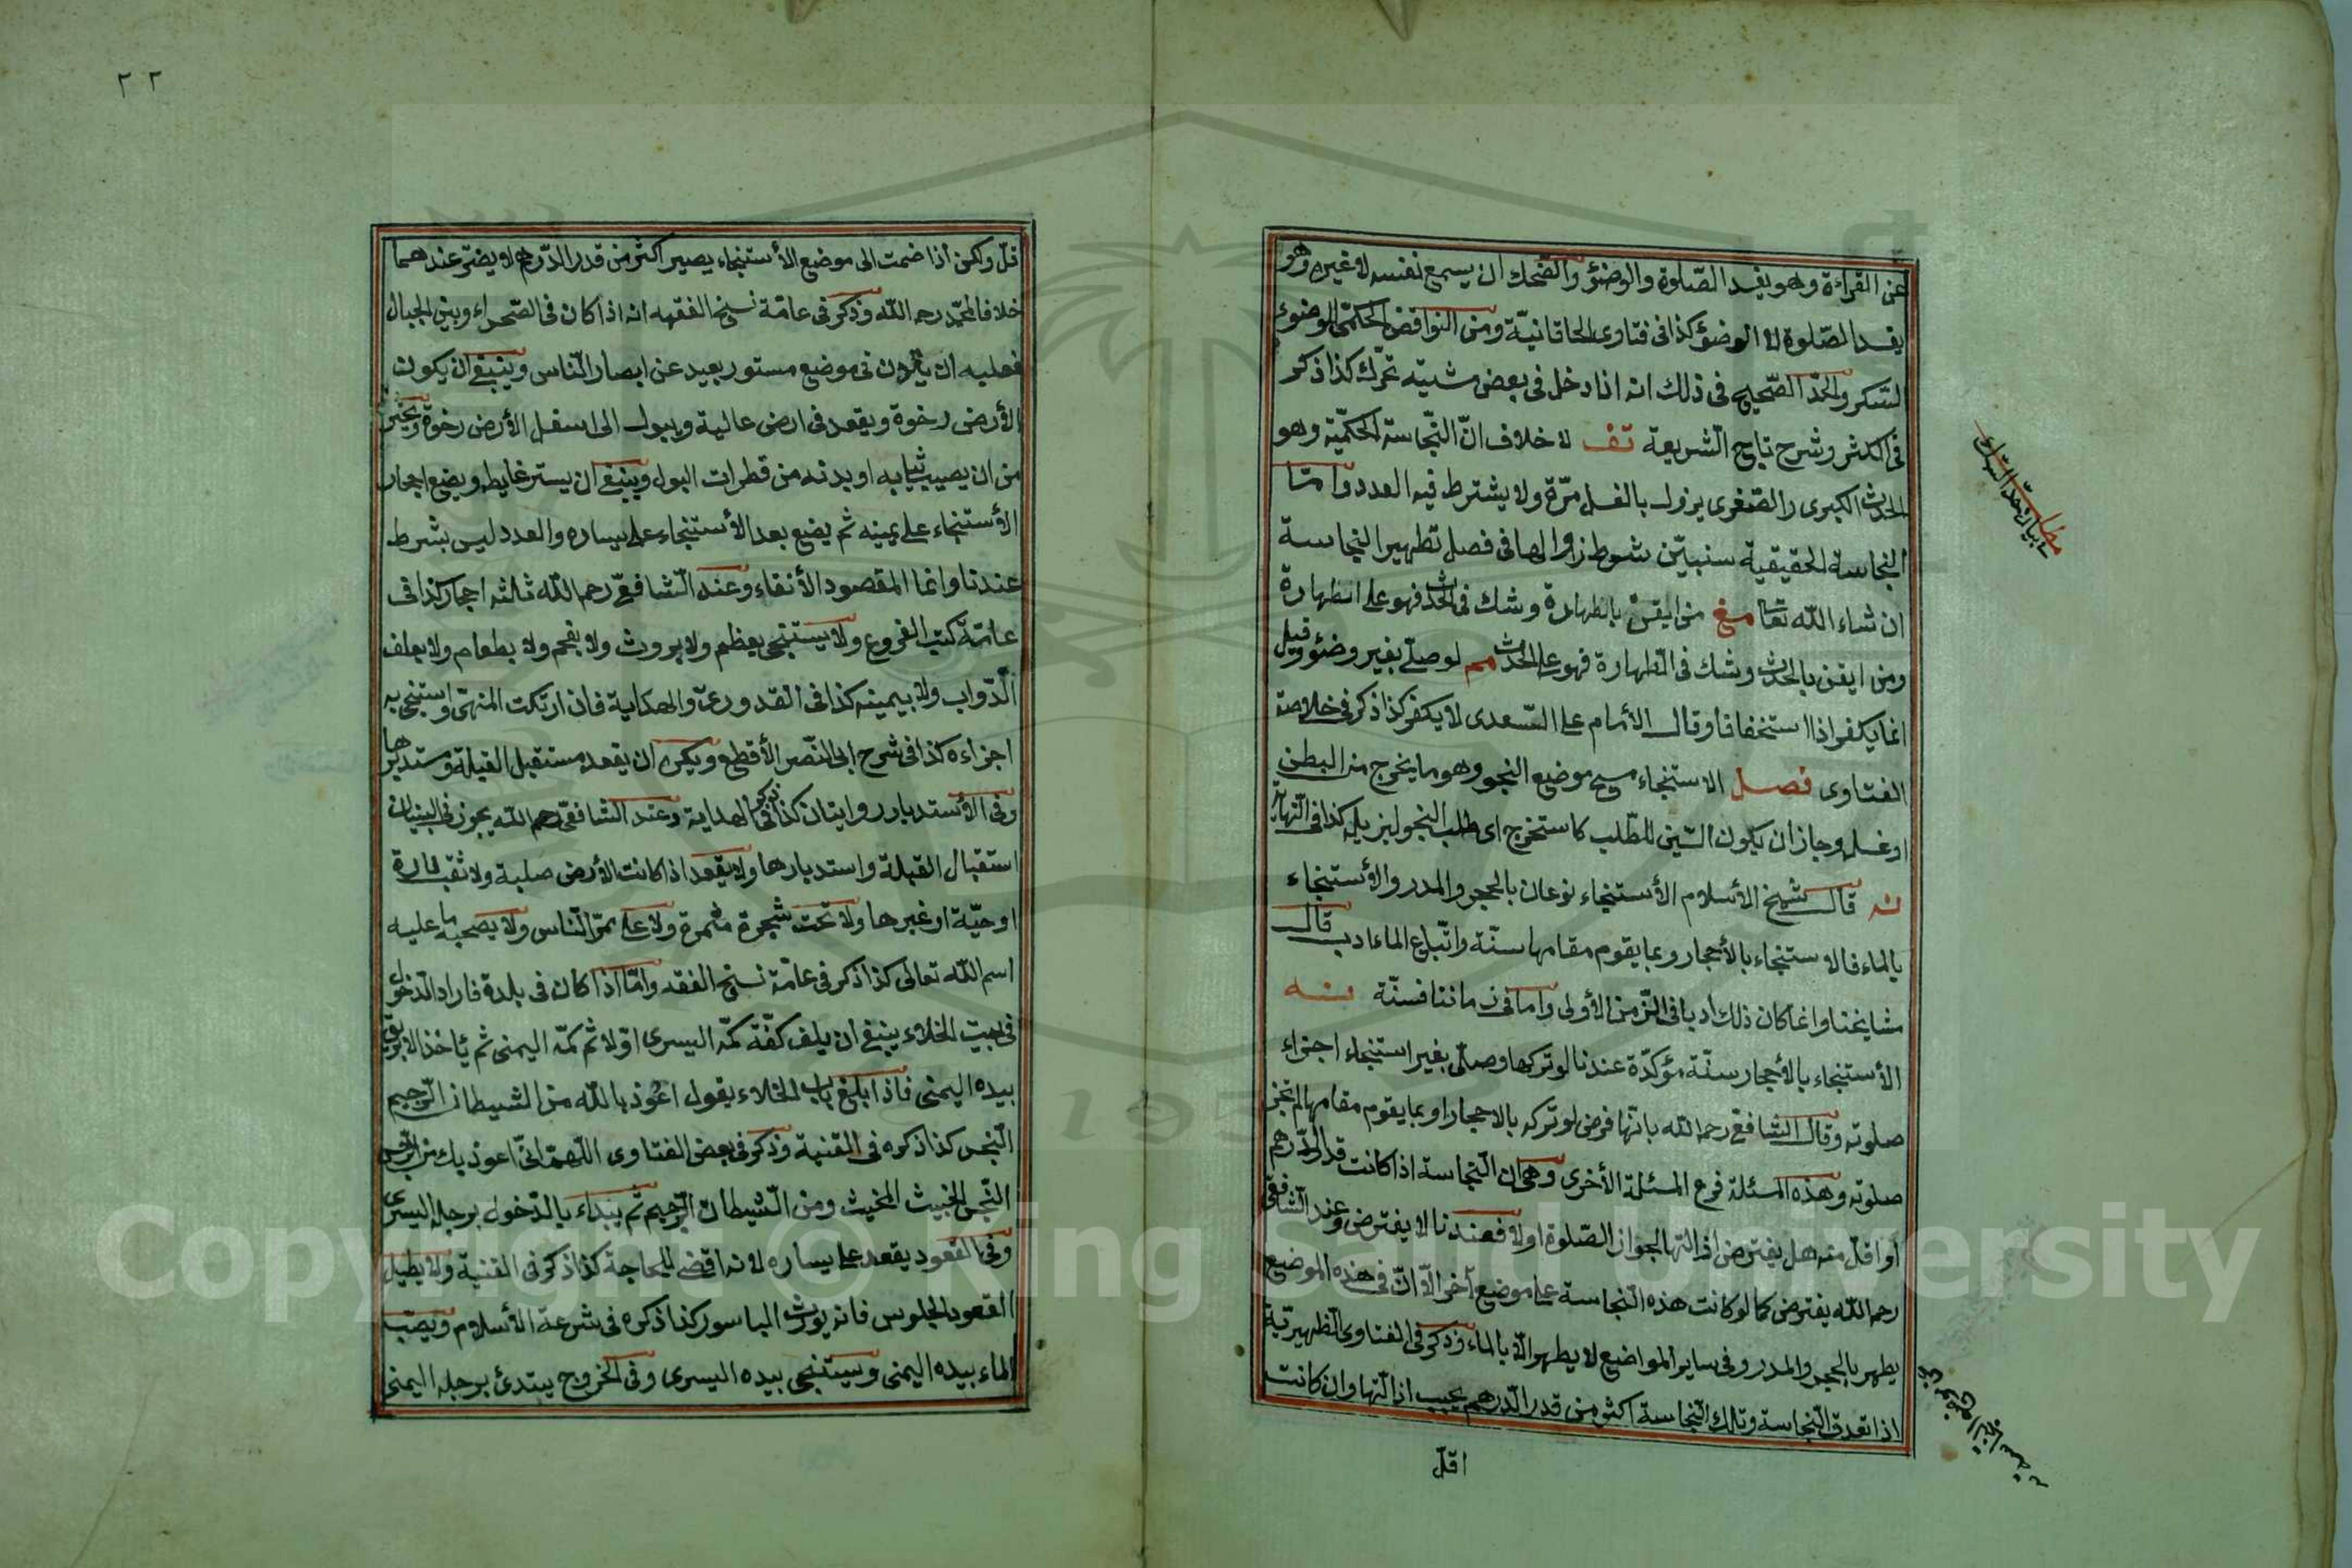 عن القراءة وهو يفسد الصّلوة والوضؤ والضّحك ان يسمع نفسه لا غيره وهو
يفسد الصّلوة لا الوضؤ كذا فى فتاوى الخاقانيّة ومن النواقض الحكمّى الوضوء
السّكر والحدّ الصّحيح فى ذلك انه اذا دخل فى بعض مشيته تحرّك كذا ذكر
فى الكثر وشرح تاج الشريعة تف لا خلاف انّ النّجاسة الحكميّة وهو
الحدث الكبرى والصّغرى يزول بالغسل مرّة ولا يشترط فيه العدد وامّا
النجاسة الحقيقية سنبيّن شروط زوالها فى فصل تطهير النجاسة
ان شاء الله تعا مغ من ايقن بالطهارة وشك فى الحدث فهو على الطهارة
ومن ايقن بالحدث وشك فى الطهارة فهو على الحدث مم لو صلّى بغير وضؤ وقيل
انما يكفر اذا استخفافا وقال الأمام على السّعدى لا يكفر كذا ذكر فى خلاصة
الفتاوى فصل الاستنجاء مسح موضع النجو وهو ما يخرج من البطن
او غسله وجاز ان يكون السّين للطّلب كاستخرج اى طلب النجو ليزيله كذا فى النّهاية
نه قال شيخ الأسلام الأستنجاء نوعان بالحجر والمدر والأستنجاء
بالماء فالاستنجاء بالأحجار وبما يقوم مقامها سنّة واتّباع الماء ادب قال
مشايخنا وانما كان ذلك ادبا فى الزّمن الأولى واما فى زماننا فسنّة نه
الأستنجاء بالأحجار سنّة مؤكّدة عندنا لو تركها وصلّى بغير استنجاء اجزاء
صلوته وقال الشافعى رحمه الله بانّها فرض لو تركه بالاحجار او بما يقوم مقامها لم تجز
صلوته وهذه المسئلة فرع المسئلة الأخرى وهى ان النّجاسة اذا كانت قدر الدّرهم
أو اقلّ منه هل يفترض ازالتها لجواز الصّلوة او لا فعندنا لا يفترض وعند الشّافعى
رحمه الله يفترض كما لو كانت هذه النّجاسة على موضع آخر الّا انّ فى هذه الموضع
يطهر بالحجر والمدر وفى ساير المواضع لا يطهر الّا بالماء وذكر فى الفتاوى الظهيريّة
اذا تعدى النّجاسة وتلك النّجاسة اكثر من قدر الدّرهم يجب ازالتها وان كانت
اقلّ
٢٢
قلّ ولكن أذا ضمت الى موضع الأستنجاء يصير اكثر من قدر الدّرهم لا يضرّ عندهما
خلافا لمحمّد رحمه الله وذكر فى عامّة نسخ الفقهه انه اذا كان فى الصّحراء وبين الجبال
فعليه ان يكون فى موضع مستور بعيد عن ابصار النّاس وينبغى ان يكون
الأرض رخوة ويقعد فى ارض عالية ويبول الى اسفل الأرض رخوة
من ان يصيب ثيابه او بدنه من قطرات البول وينبغى ان يستر غايطه ويضع احجار
الأستنجاء على يمينه ثم يضع بعد الأستنجاء على يساره والعدد ليس بشرط
عندنا وانما المقصود الأنقاء وعند الشافعىّ رحم الله ثلثه احجار كذا فى
عامّة كتب الفروع ولا يستنجى بعظم ولا بروث ولا بفحم ولا بطعام ولا بعلف
الدّواب ولا بيمينه كذا فى القدورىّ والهداية فان ارتكت المنهى واستنجى به
اجزاءه كذا فى شرح ابى النّصر الأقطع ويكره ان يقعد مستقبل القبلة ومستدبرها
وفى الأستدبار روايتان كذا ذكر فى الهداية وعند الشافعىّ رحم الله يجوز فى البنيان
استقبال القبلة واستدبارها ولا يقعد اذا كانت الأرض صلبة ولا ثقب فارة
او حيّة او غيرها ولا تحت شجرة مثمرة ولا على ممرّ النّاس ولا يصحب ما عليه
اسم الله تعالى كذا ذكر فى عامّة نسخ الفقه وامّا اذا كان فى بلدة فاراد الدّخول
فى بيت الخلاء ينبغى ان يلف كفّة كمّه اليسرى اوّلا ثم كمّه اليمنى ثم يأخذ الابريق
بيده اليمنى فاذا بلغ باب الخلاء يقول اعوذ بالله من الشيطان الرّجيم
النّجس كذا ذكره فى القنية وذكر فى بعض الفتاوى اللّهمّ انّى اعوذ بك من الرّجس
النّجس الخبيث المخبث ومن الشّيطان الرّجيم ثم يبداء بالدّخول برجله اليسرى
وفى القعود يقعد على يساره لانه اقضى للحاجة كذا ذكر فى القنية ولا يطيل
القعود الجلوس فانه يورث الباسور كذا ذكره فى شرعة الأسلام ويصب
الماء بيده اليمنى ويستنجى بيده اليسرى وفى الخروج يبتدئ برجله اليمنى
Copyright © King Saud University
195